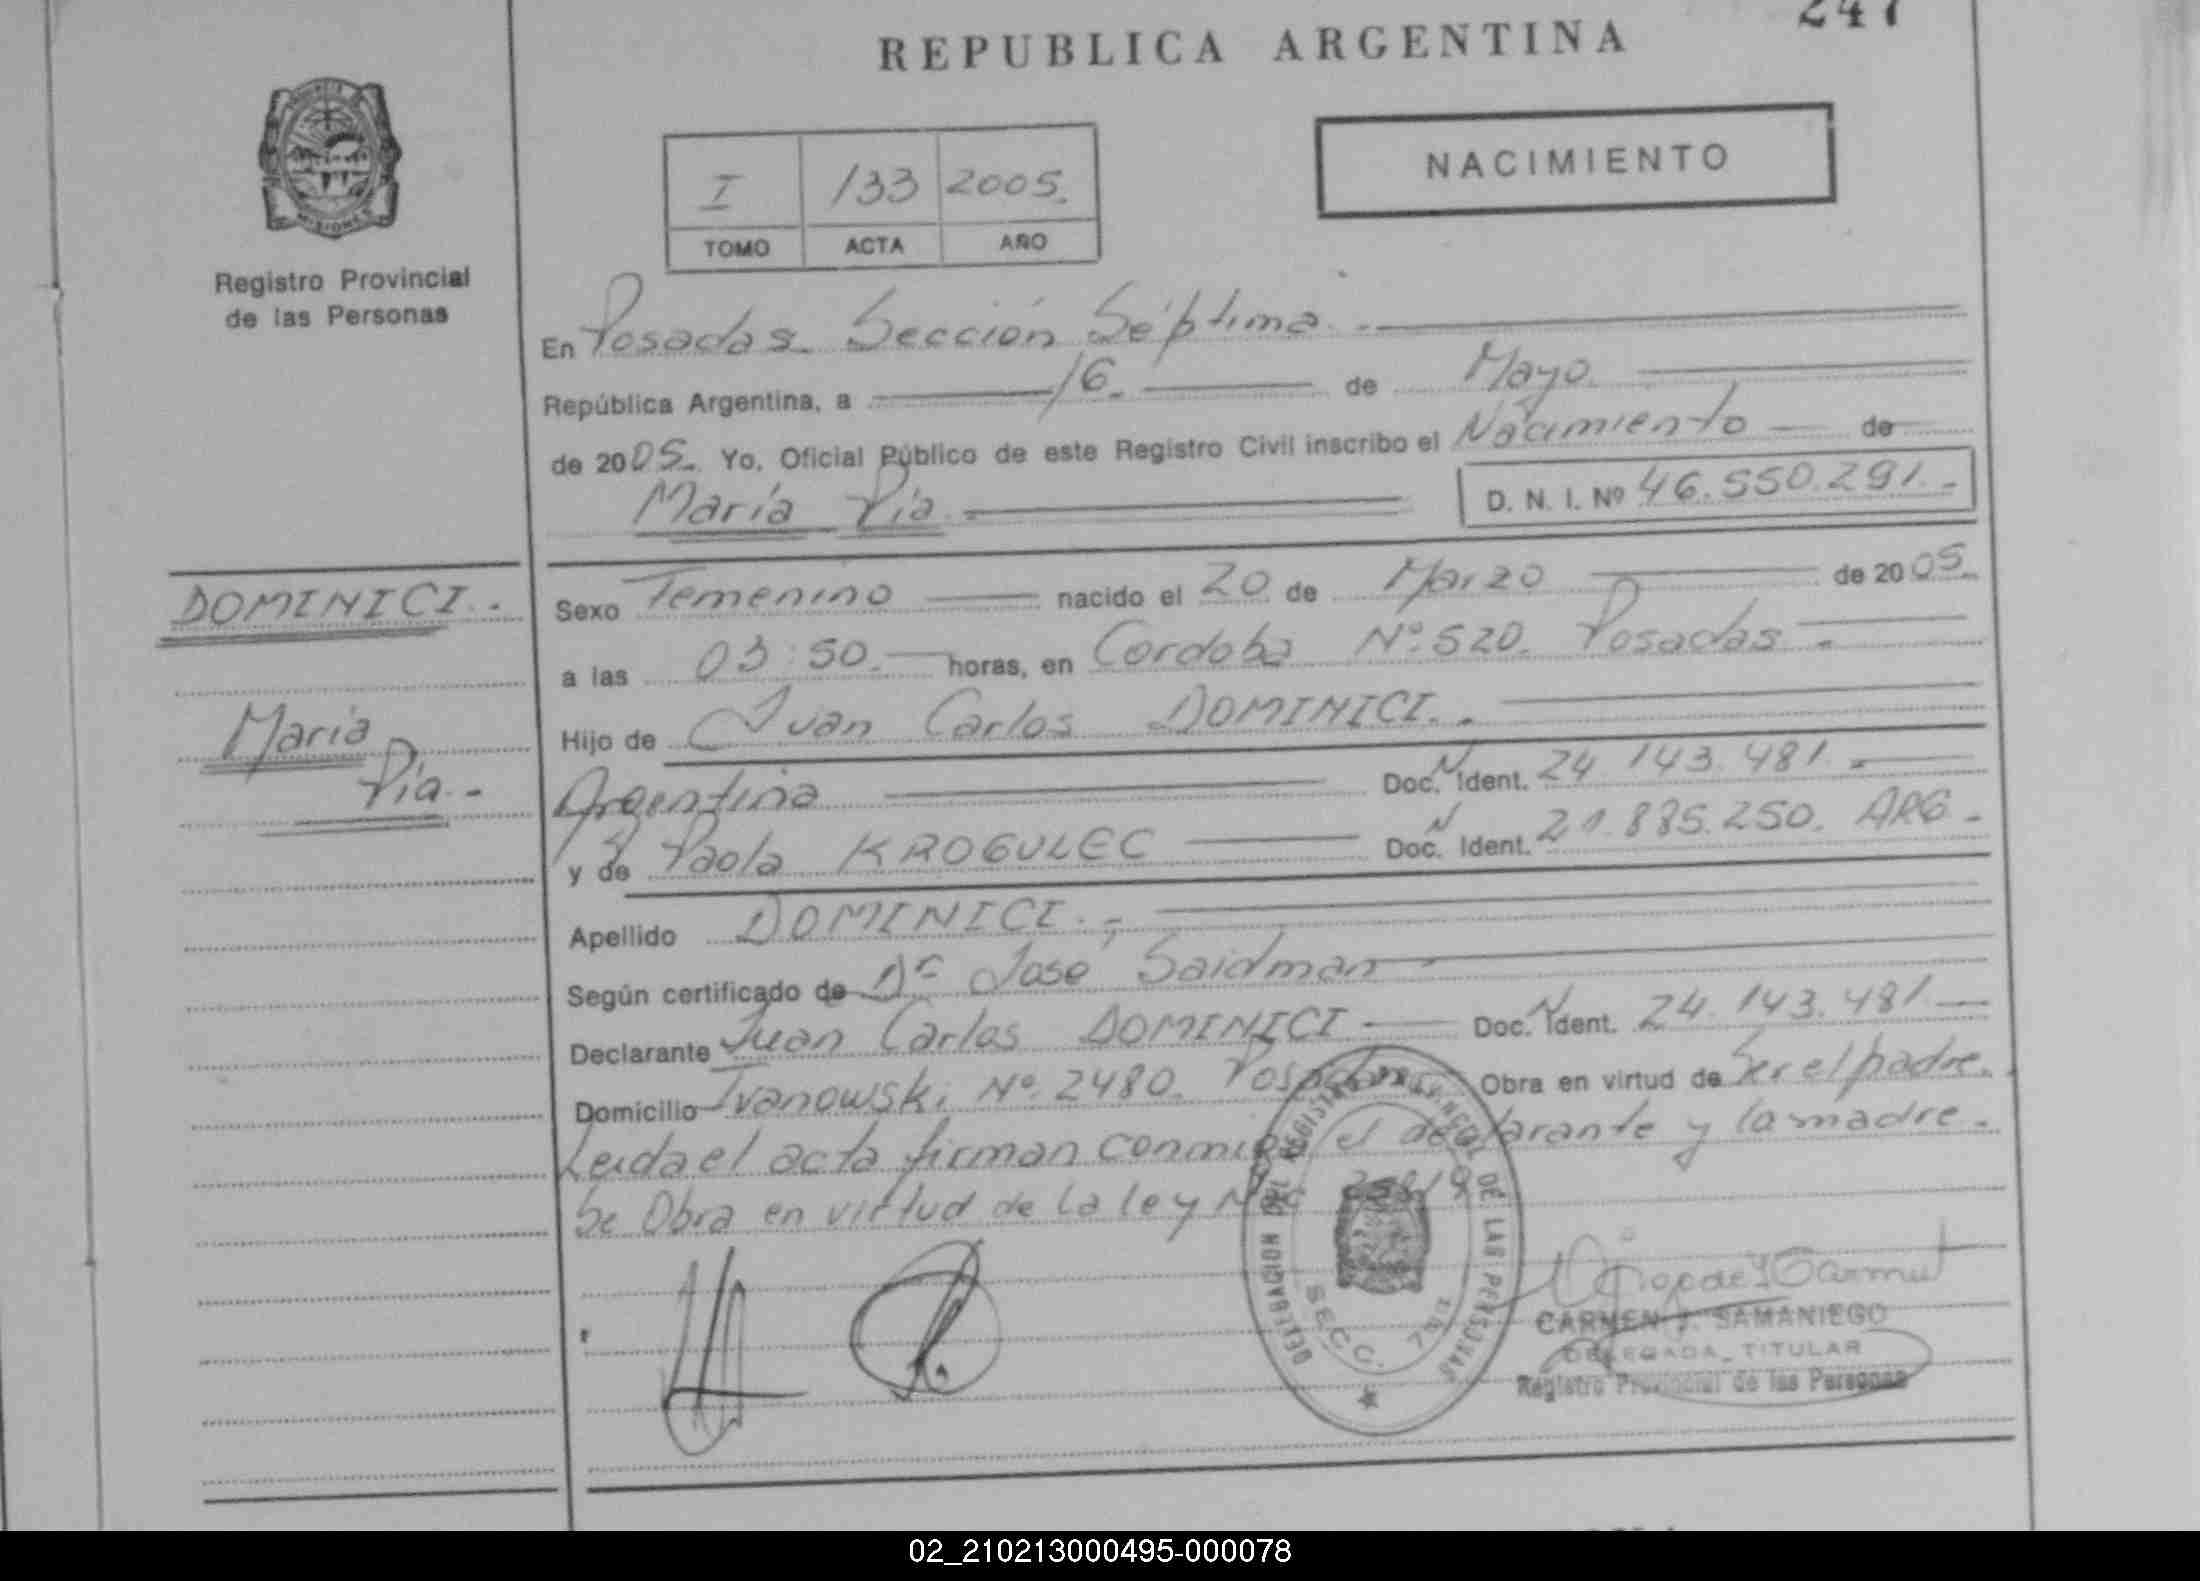 247
REPUBLICA ARGENTINA
NACIMIENTO
I 133 2005.
TOMO ACTA AÑO
MISIONES
Registro Provincial
de las Personas
En Posadas. Sección Séptima.
República Argentina, a 16. de Mayo.
de 2005. Yo, Oficial Público de este Registro Civil inscribo el Nacimiento de
María Pía. D. N. I. Nº 46.550.291.-
DOMINICI.
María
Pía.-
Sexo Femenino nacido el 20 de Marzo de 2005.
a las 03:50. horas, en Cordoba Nº:520. Posadas.-
Hijo de Juan Carlos DOMINICI..
Argentina Doc. N Ident. 24.143.481.-
y de Paola KROGULEC Doc. N Ident. 21.885.250. ARG.-
Apellido DOMINICI.-
Según certificado de Dr José Saidman
Declarante Juan Carlos DOMINICI Doc. N Ident. 24.143.481.
Domicilio Ivanowski Nº:2480. Posadas Obra en virtud de Ser el padre.
Leida el acta firman conmigo el declarante y la madre.-
Se Obra en virtud de la ley Nº
DELEGACION DEL REGISTRO PROVINCIAL DE LAS PERSONAS
SECC. 7ma
CARMEN J. SAMANIEGO
DELEGADA TITULAR
Registro Provincial de las Personas
02_210213000495-000078